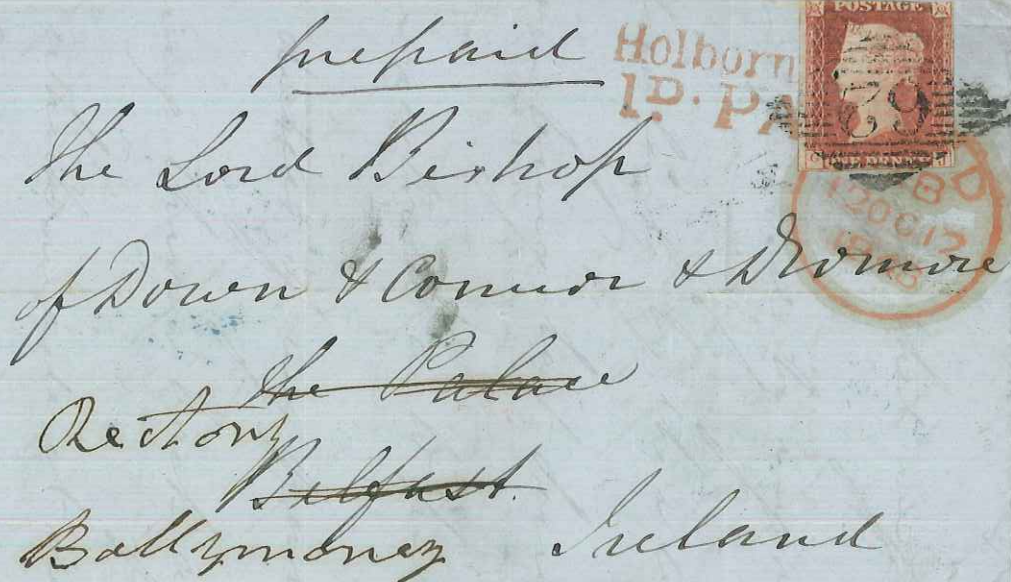 prepaid
Holborn
1D. PA
POSTAGE
62
ONE PENNY
The Lord Bishop
of Down & Connor & Dromore
the Palace
Rectory
Belfast.
Ballymoney Ireland
BD
12 OC 12